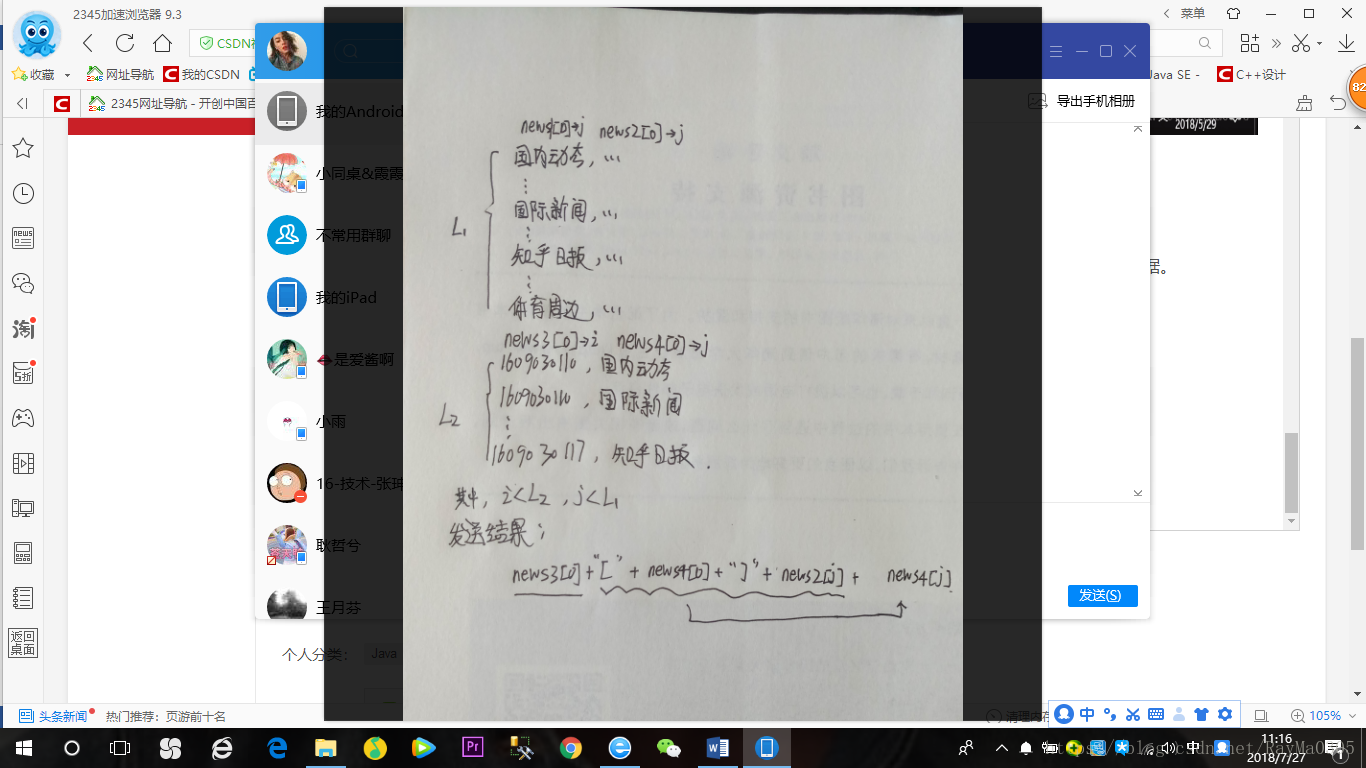 2345加速浏览器 9.3
菜单
CSDN社
收藏
网址导航
我的CSDN
Java SE -
C++设计
2345网址导航 - 开创中国百
82
2018/5/29
导出手机相册
我的Android
小同桌&霞霞
不常用群聊
我的iPad
是爱酱啊
小雨
16-技术-张
耿哲兮
王月芬
news
淘
5折
返回桌面
居。
news1[0]→j news2[0]→j
国内动态, …
⋮
国际新闻, …
⋮
知乎日报, …
⋮
体育周边, …
L1
news3[0]→i news4[0]→j
1609030110, 国内动态
1609030110, 国际新闻
⋮
1609030117, 知乎日报.
L2
其中, i<L2, j<L1
发送结果:
news3[0]+"["+news4[0]+"]"+news2[j]+ news4[j]
发送(S)
个人分类:
Java
头条新闻
热门推荐:
页游前十名
清理内存
中
105%
Pr
中
11:16
2018/7/27
1
https://blog.csdn.net/RayMa0305